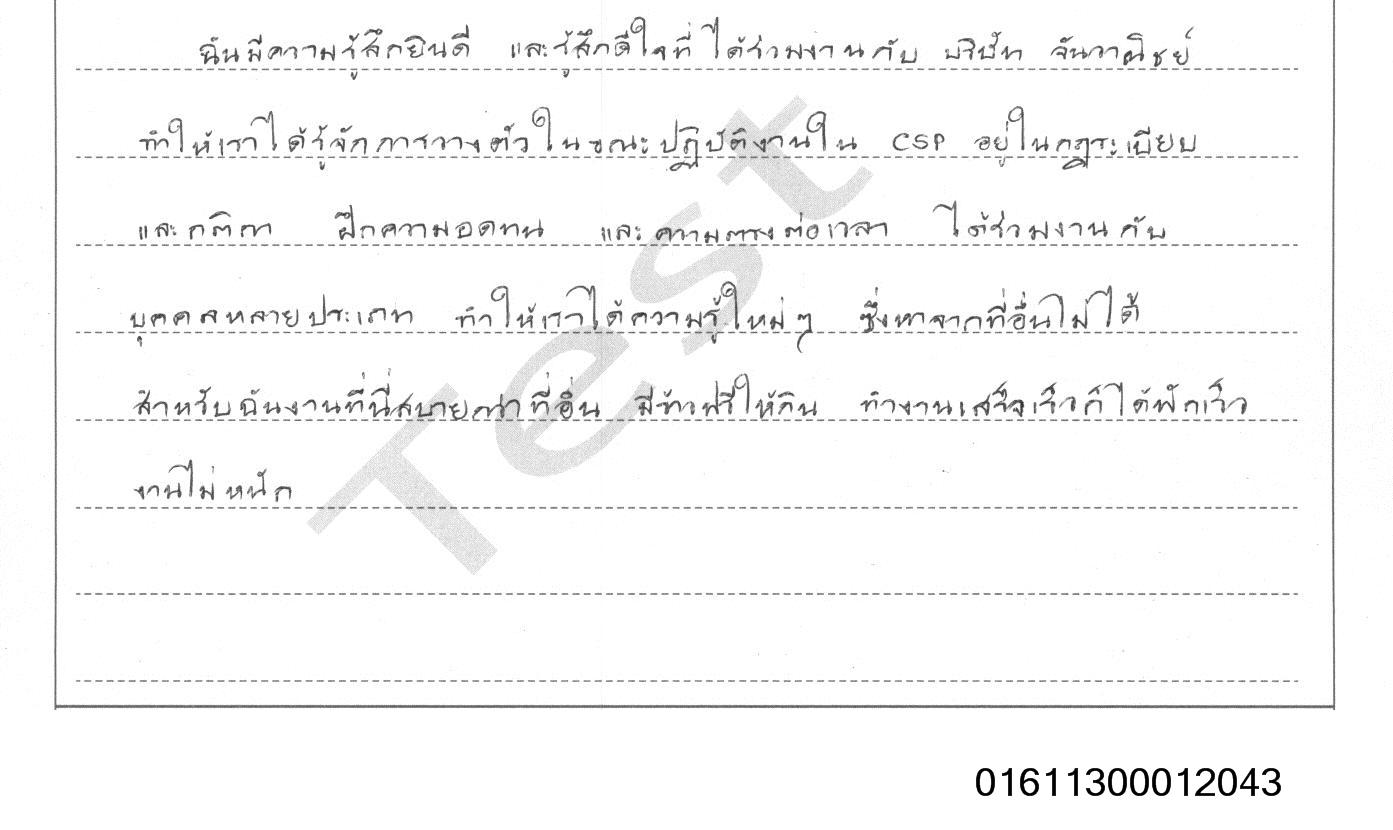 ฉันมีความรู้สึกยินดี และรู้สึกดีใจที่ได้ร่วมงานกับ บริษัท จันวาณิชย์
ทำให้เราได้รู้จักการวางตัวในขณะปฏิบัติงานใน CSP อยู่ในกฎระเบียบ
และกติกา ฝึกความอดทน และความตรงต่อเวลา ได้ร่วมงานกับ
บุคคลหลายประเภท ทำให้เราได้ความรู้ใหม่ๆ ซึ่งหาจากที่อื่นไม่ได้
สำหรับฉันงานที่นี่สบายกว่าที่อื่น มีข้าวฟรีให้กิน ทำงานเสร็จเร็วก็ได้พักเร็ว
งานไม่หนัก
Test
01611300012043